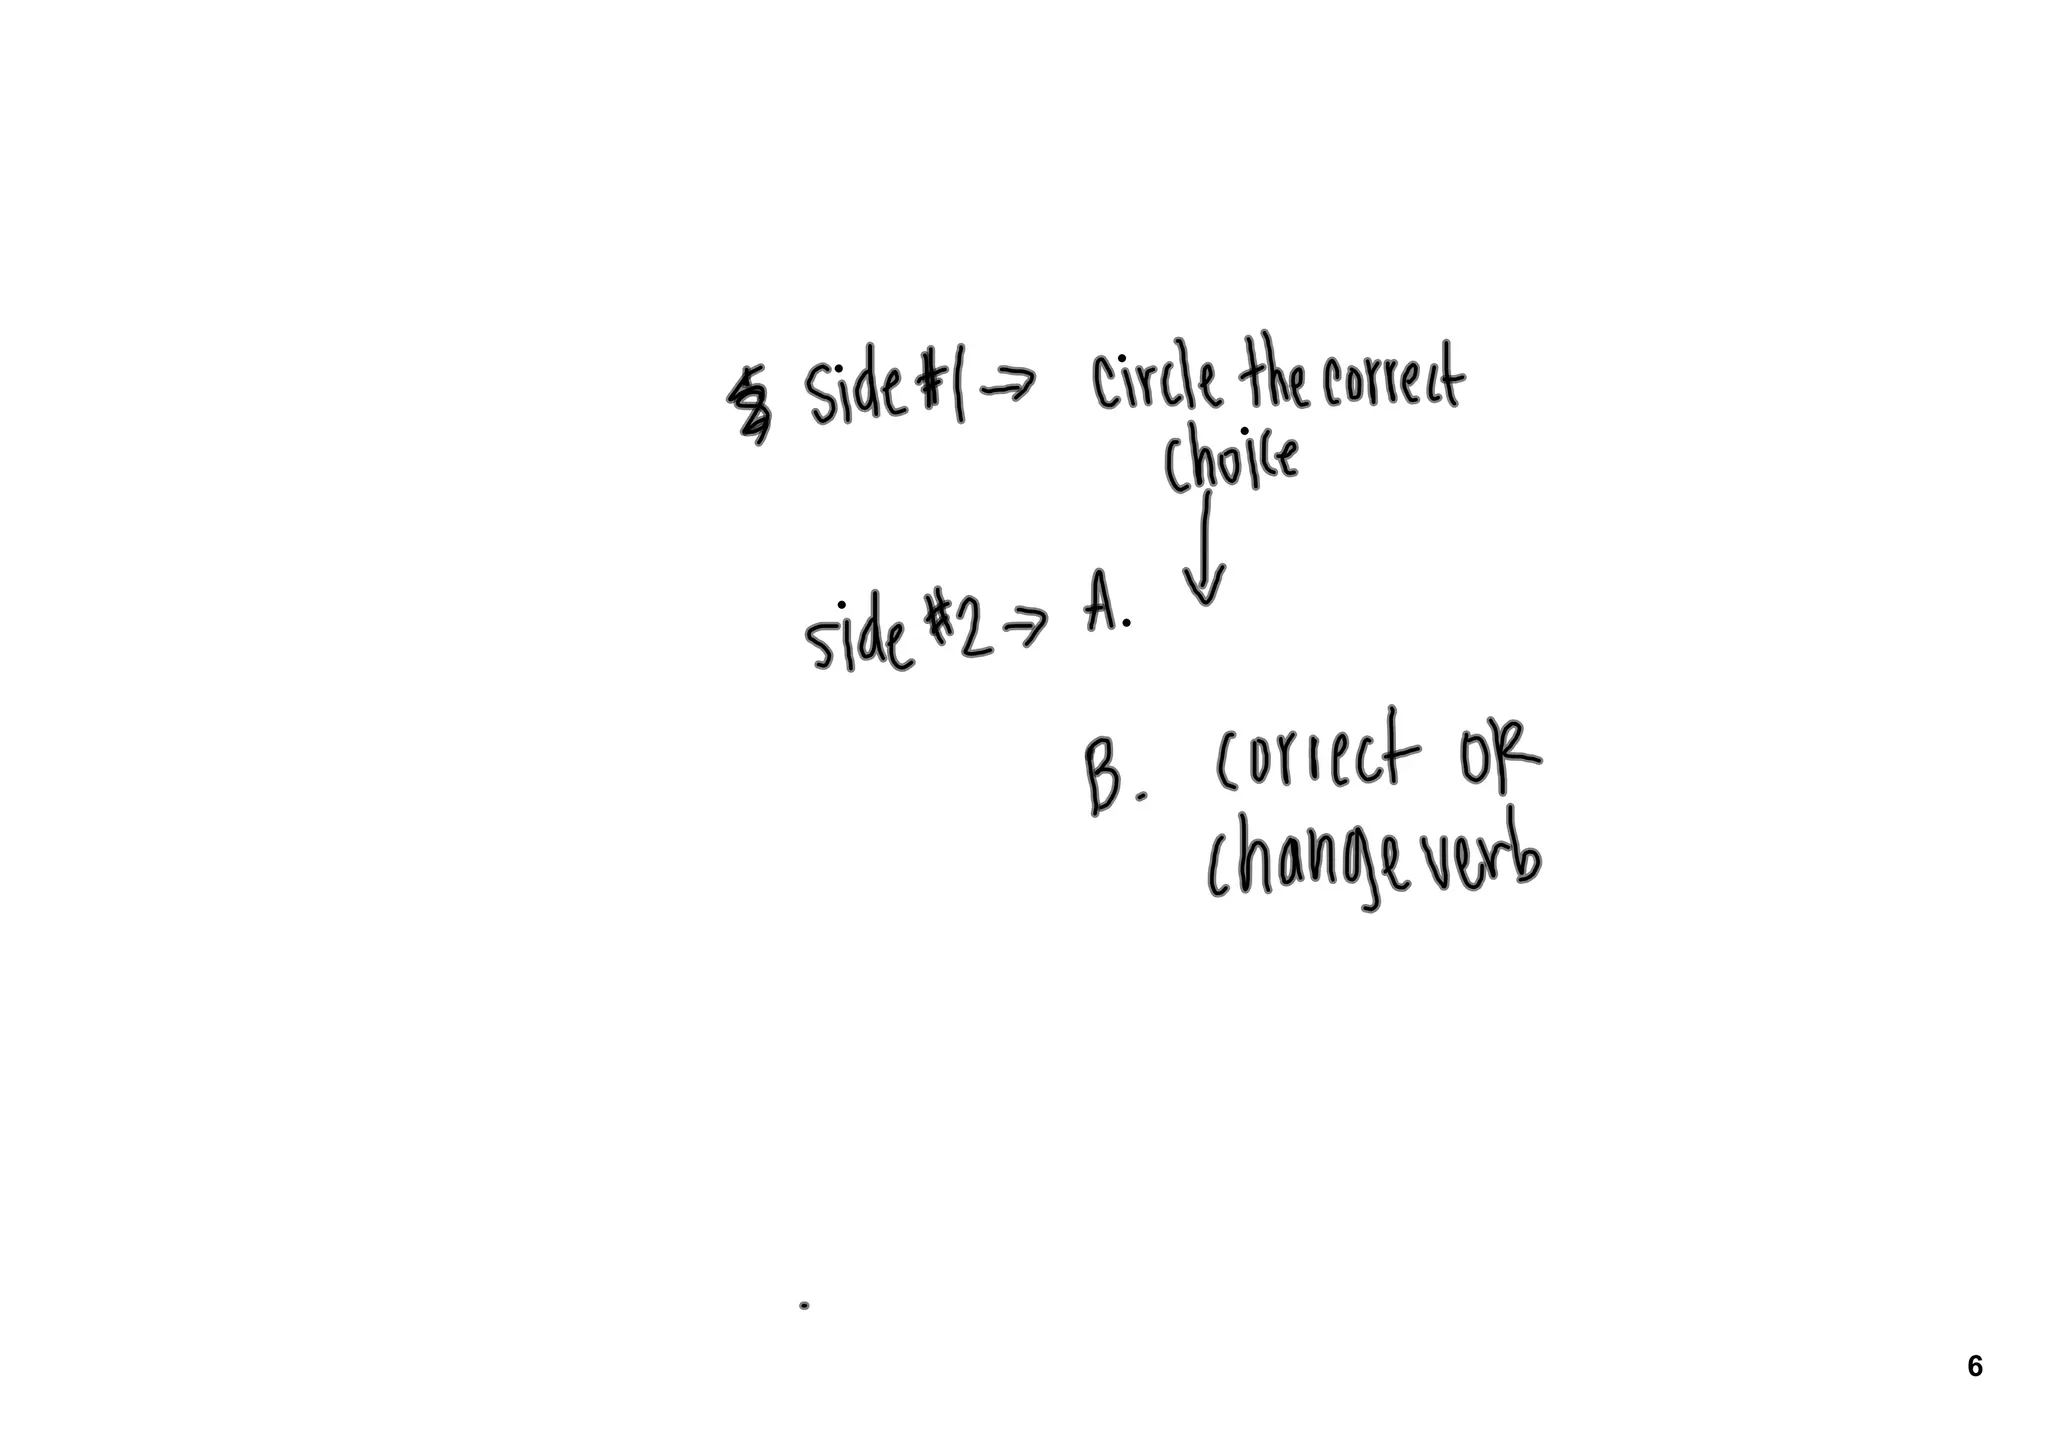 side #1 → circle the correct
choice
↓
side #2 → A.
B. correct OR
change verb
6